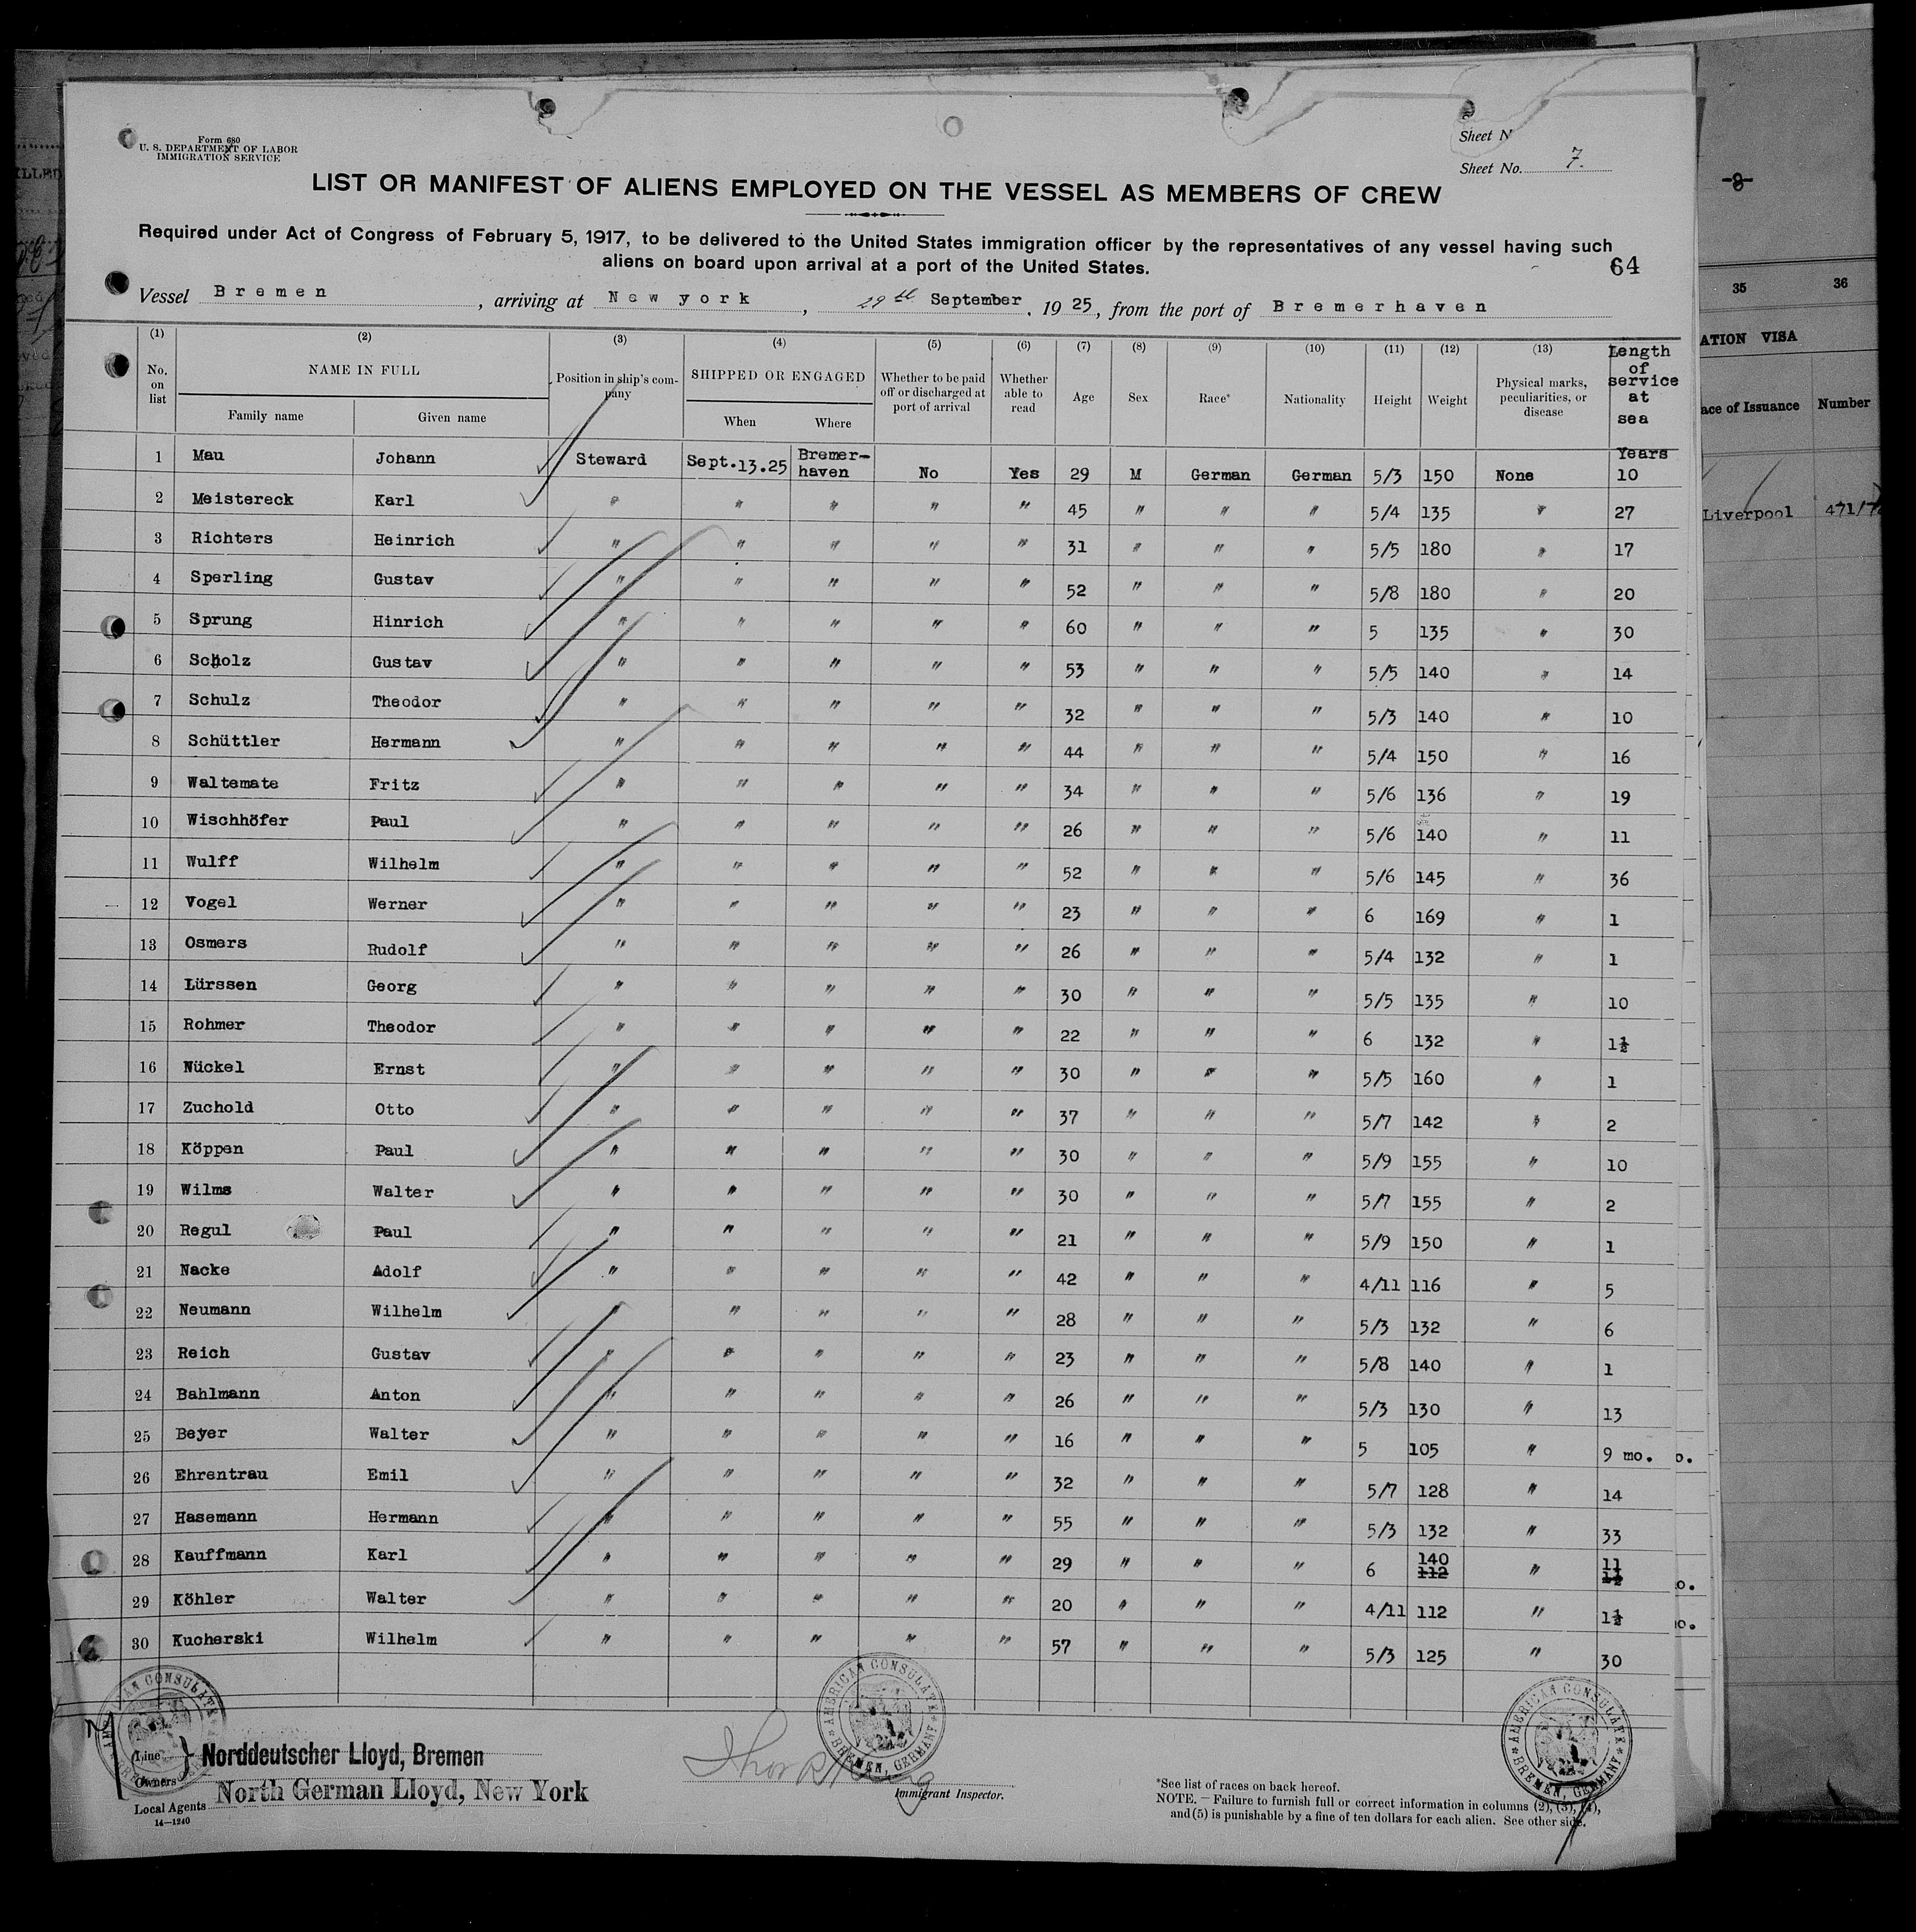 Form 680
U. S. DEPARTMENT OF LABOR
IMMIGRATION SERVICE
Sheet N
Sheet No. 7.
LIST OR MANIFEST OF ALIENS EMPLOYED ON THE VESSEL AS MEMBERS OF CREW
Required under Act of Congress of February 5, 1917, to be delivered to the United States immigration officer by the representatives of any vessel having such
aliens on board upon arrival at a port of the United States.
64
Vessel Bremen, arriving at New york, 29th September, 1925, from the port of Bremerhaven
(1) (2) (3) (4) (5) (6) (7) (8) (9) (10) (11) (12) (13)
No. on list
NAME IN FULL
Family name
Given name
Position in ship's company
SHIPPED OR ENGAGED
When
Where
Whether to be paid off or discharged at port of arrival
Whether able to read
Age
Sex
Race*
Nationality
Height
Weight
Physical marks, peculiarities, or disease
Length of service at sea
Years
1 Mau Johann Steward Sept.13.25 Bremerhaven No Yes 29 M German German 5/3 150 None 10
2 Meistereck Karl " " " " " 45 " " " 5/4 135 " 27
3 Richters Heinrich " " " " " 31 " " " 5/5 180 " 17
4 Sperling Gustav " " " " " 52 " " " 5/8 180 " 20
5 Sprung Hinrich " " " " " 60 " " " 5 135 " 30
6 Scholz Gustav " " " " " 53 " " " 5/5 140 " 14
7 Schulz Theodor " " " " " 32 " " " 5/3 140 " 10
8 Schüttler Hermann " " " " " 44 " " " 5/4 150 " 16
9 Waltemate Fritz " " " " " 34 " " " 5/6 136 " 19
10 Wischhöfer Paul " " " " " 26 " " " 5/6 140 " 11
11 Wulff Wilhelm " " " " " 52 " " " 5/6 145 " 36
12 Vogel Werner " " " " " 23 " " " 6 169 " 1
13 Osmers Rudolf " " " " " 26 " " " 5/4 132 " 1
14 Lürssen Georg " " " " " 30 " " " 5/5 135 " 10
15 Rohmer Theodor " " " " " 22 " " " 6 132 " 1½
16 Nückel Ernst " " " " " 30 " " " 5/5 160 " 1
17 Zuchold Otto " " " " " 37 " " " 5/7 142 " 2
18 Köppen Paul " " " " " 30 " " " 5/9 155 " 10
19 Wilms Walter " " " " " 30 " " " 5/7 155 " 2
20 Regul Paul " " " " " 21 " " " 5/9 150 " 1
21 Nacke Adolf " " " " " 42 " " " 4/11 116 " 5
22 Neumann Wilhelm " " " " " 28 " " " 5/3 132 " 6
23 Reich Gustav " " " " " 23 " " " 5/8 140 " 1
24 Bahlmann Anton " " " " " 26 " " " 5/3 130 " 13
25 Beyer Walter " " " " " 16 " " " 5 105 " 9 mo.
26 Ehrentrau Emil " " " " " 32 " " " 5/7 128 " 14
27 Hasemann Hermann " " " " " 55 " " " 5/3 132 " 33
28 Kauffmann Karl " " " " " 29 " " " 6 140 112 " 11
29 Köhler Walter " " " " " 20 " " " 4/11 112 " 1½
30 Kucherski Wilhelm " " " " " 57 " " " 5/3 125 " 30
AMERICAN CONSULATE
BREMEN, GERMANY
AMERICAN CONSULATE
BREMEN, GERMANY
AMERICAN CONSULATE
BREMEN, GERMANY
Line
Owners
Norddeutscher Lloyd, Bremen
Local Agents North German Lloyd, New York
14—1240
Immigrant Inspector.
*See list of races on back hereof.
NOTE.—Failure to furnish full or correct information in columns (2), (3), (4),
and (5) is punishable by a fine of ten dollars for each alien. See other side.
-8-
35 36
ATION VISA
ace of Issuance Number
Liverpool 471/7